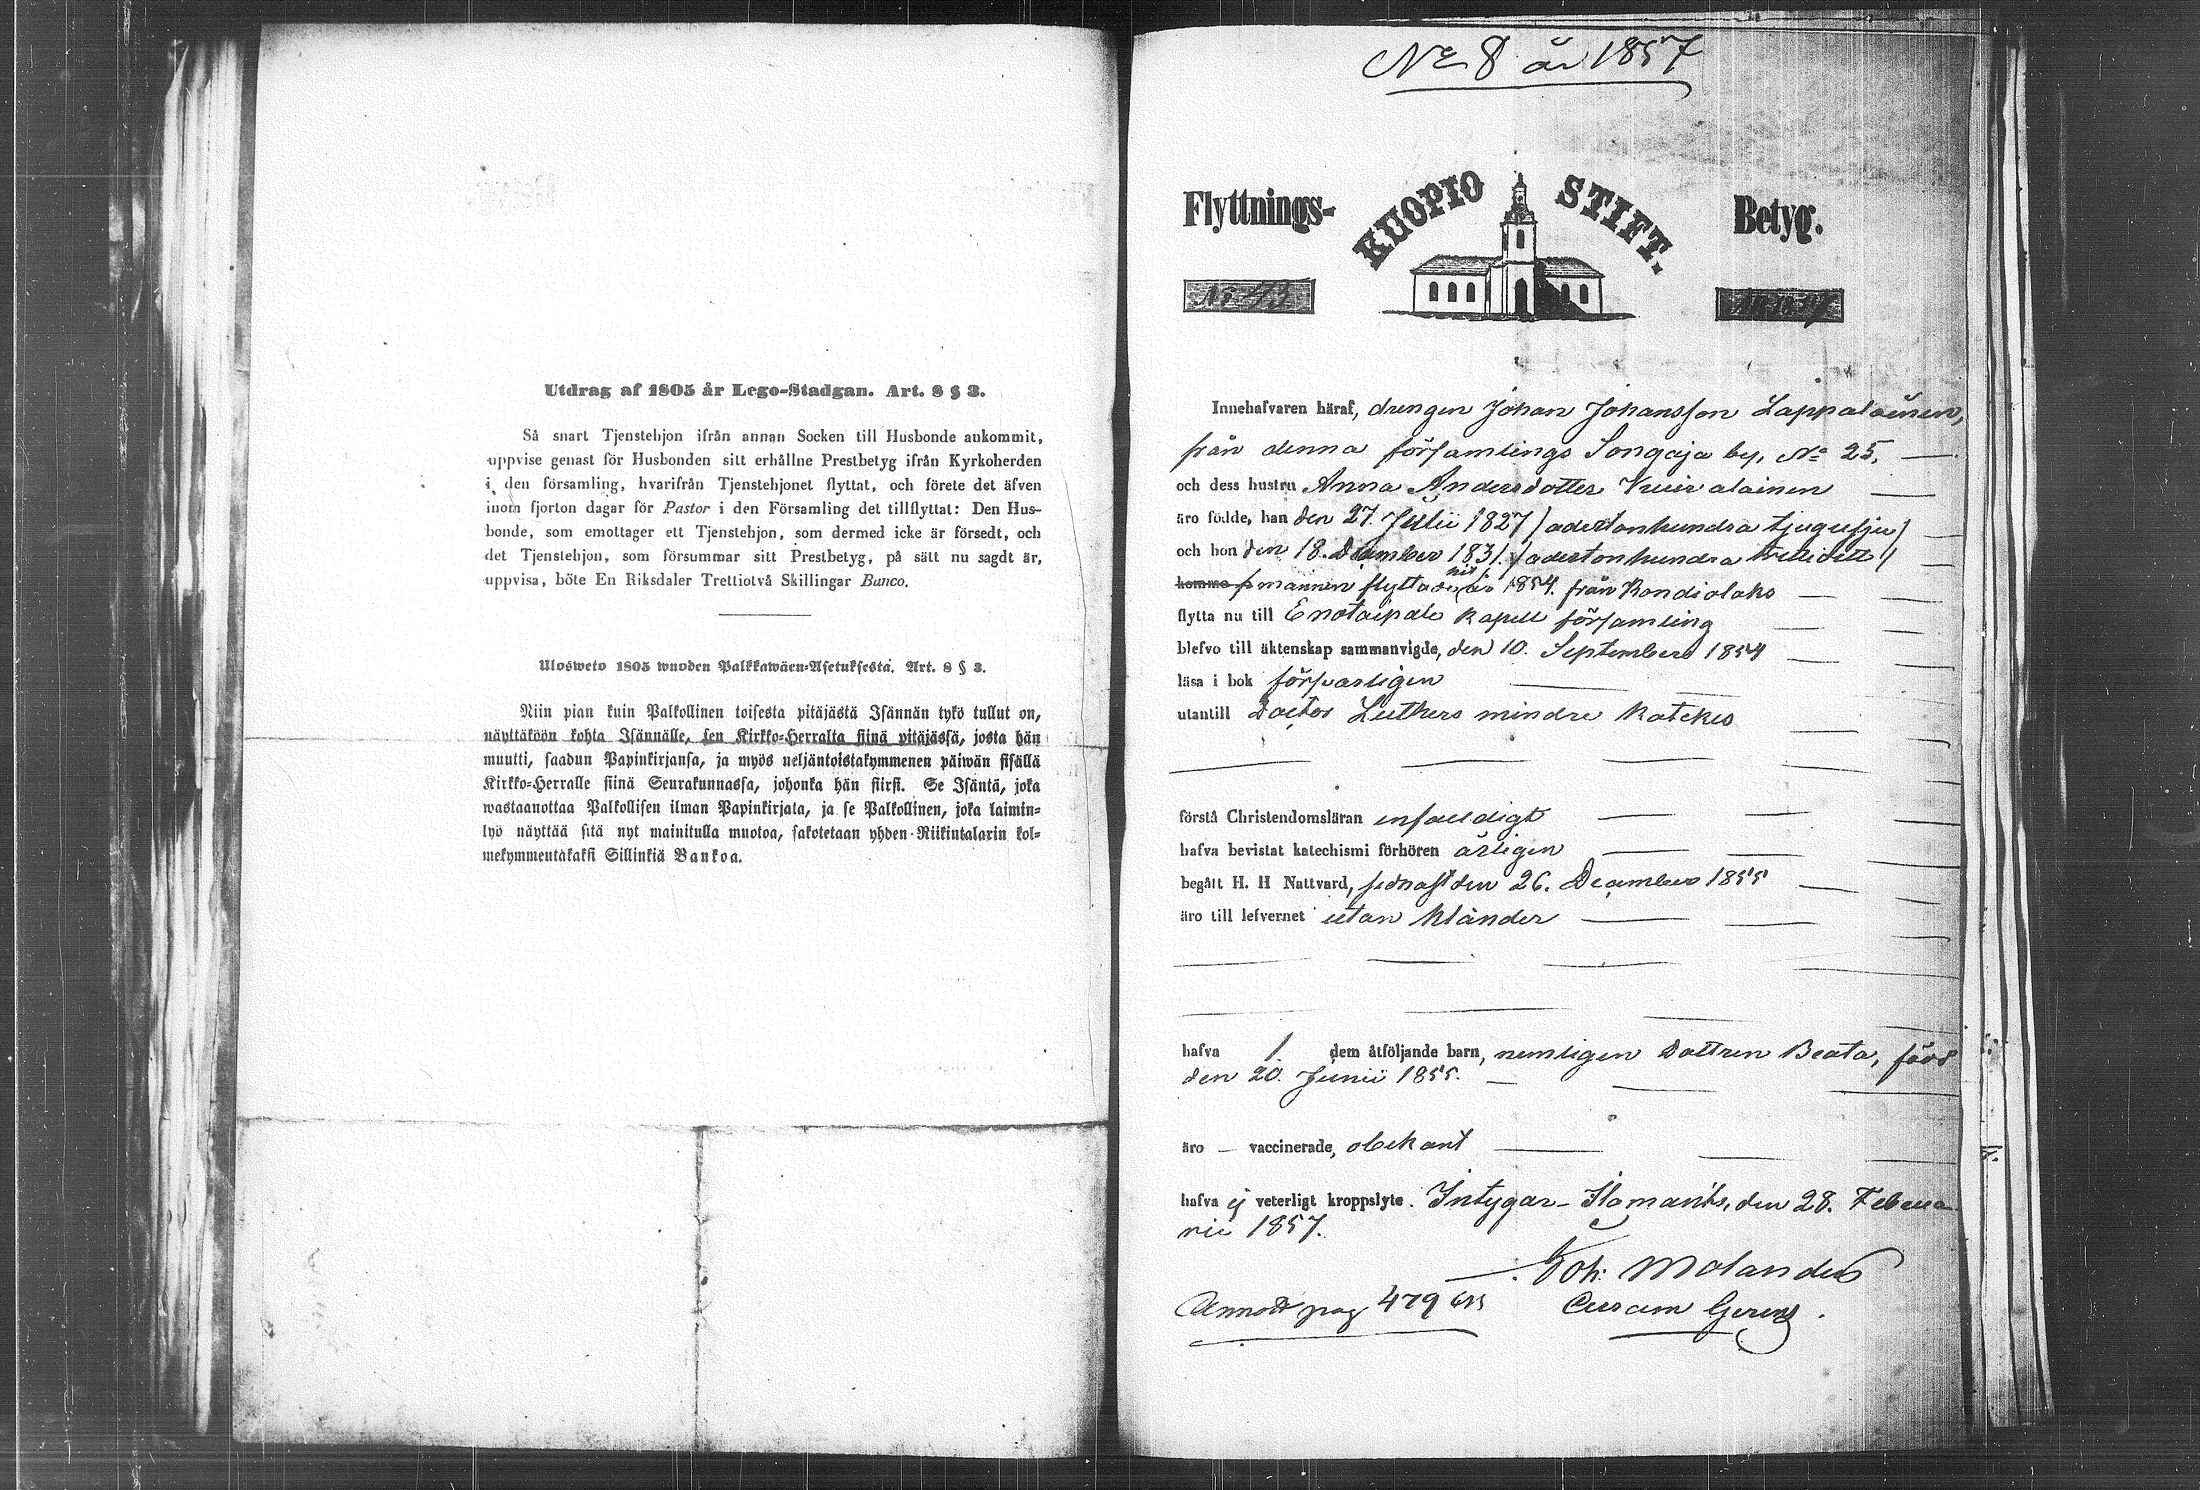 Utdrag af 1805 år Lego-Stadgan. Art. 8 § 3.
Så snart Tjenstehjon ifrån annan Socken till Husbonde ankommit,
uppvise genast för Husbonden sitt erhållne Prestbetyg ifrån Kyrkoherden
i den församling, hvarifrån Tjenstehjonet flyttat, och förete det äfven
inom fjorton dagar för Pastor i den Församling det tillflyttat: Den Hus-
bonde, som emottager ett Tjenstehjon, som dermed icke är försedt, och
det Tjenstehjon, som försummar sitt Prestbetyg, på sätt nu sagdt är,
uppvisa, böte En Riksdaler Trettiotvå Skillingar Banco.
Ulosweto 1805 wuoden Palkkawäen-Asetuksesta. Art. 8 § 3.
Niin pian kuin Palkollinen toisesta pitäjästä Isännän tykö tullut on,
näyttäköön kohta Isännälle, sen Kirkko-Herralta siinä pitäjässä, josta hän
muutti, saadun Papinkirjansa, ja myös neljäntoistakymmenen päiwän sisällä
Kirkko-Herralle siinä Seurakunnassa, johonka hän siirsi. Se Isäntä, joka
wastaanottaa Palkollisen ilman Papinkirjata, ja se Palkollinen, joka laimin-
lyö näyttää sitä nyt mainitulla muotoa, sakotetaan yhden Riikintalarin kol-
mekymmentäkaksi Sillinkiä Bankoa.
No 8 år 1857
Flyttnings- KUOPIO STIFT. Betyg.
No 43
Innehafvaren häraf, drengen Johan Johansson Lappalainen,
från denna församlings Songaja by, No 25,
och dess hustru Anna Andersdotter
äro födde, han den 27. Julii 1827 (adertonhundra tjugusju)
och hon den 18. December 1831. (adertonhundra trettiett)
komma mannen flyttade hit år 1854. från Kondiolaks
flytta nu till Enotaipale kapell församling
blefvo till äktenskap sammanvigde, den 10. September 1854
läsa i bok försvarligen
utantill Doctor Luthers mindre Kateches
förstå Christendomsläran enfaldigt
hafva bevistat katechismi förhören årligen
begått H. H Nattvard, sednast den 26. December 1855
äro till lefvernet utan klander
hafva 1. dem åtföljande barn, nemligen Dottren Beata, född
den 20. Junii 1855.
äro — vaccinerade, obekant
hafva ej veterligt kroppslyte. Intygar Ilomants, den 28. Februa
rii 1857.
Joh. Molander
Annot pag 479 Curam Gerens.